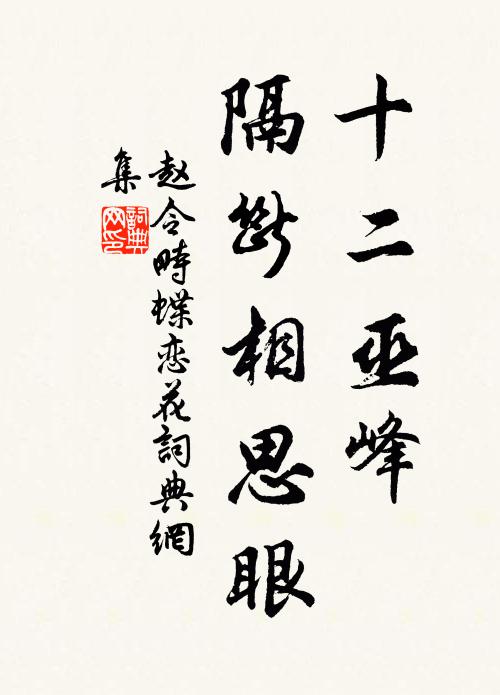 十二巫峰
隔断相思眼
赵令畤蝶恋花詞典網
集
詞典
网印